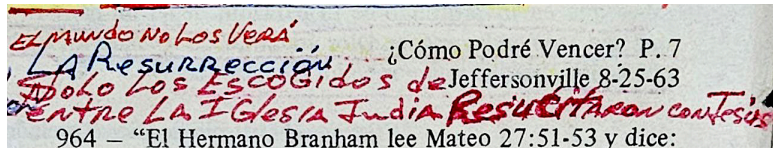 EL MUNDO NO LOS VERÁ
LA RESURRECCIÓN. ¿Cómo Podré Vencer? P. 7
SOLO LOS ESCOGIDOS de Jeffersonville 8-25-63
ENTRE LA IGLESIA JUDIA RESUCITARON CON JESÚS
964 – “El Hermano Branham lee Mateo 27:51-53 y dice: